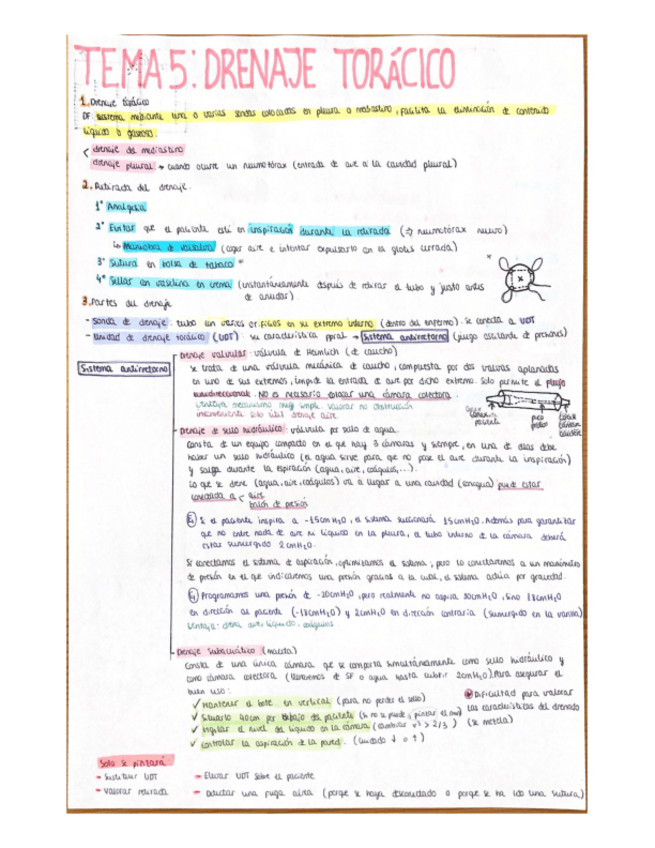 TEMA 5: DRENAJE TORÁCICO
1. Drenaje torácico
DF: sistema mediante una o varias sondas colocadas en pleura o mediastino, facilita la eliminación de contenido
líquido o gaseoso.
drenaje del mediastino
drenaje pleural → cuando ocurre un neumotórax (entrada de aire a la cavidad pleural)
2. Retirada del drenaje.
1º Analgesia
2º Evitar que el paciente esté en inspiración durante la retirada (⇒ neumotórax nuevo)
↳ Maniobra de valsalva (coger aire e intentar expulsarlo con la glotis cerrada)
3º Sutura en bolsa de tabaco *
4º Sellar con vaselina en crema (instantáneamente después de retirar el tubo y justo antes
de anudar).
*
3. Partes del drenaje
- Sonda de drenaje: tubo con varios orificios en su extremo interno (dentro del enfermo). Se conecta a UDT
- Unidad de drenaje torácico (UDT): su característica ppral → Sistema antirretorno (juego oscilante de presiones)
Sistema antirretorno
Drenaje valvular: válvula de Heimlich (de caucho)
Se trata de una válvula mecánica de caucho, compuesta por dos valvas aplanadas
en uno de sus extremos, impide la entrada de aire por dicho extremo. Solo permite el flujo
unidireccional. No es necesario colocar una cámara colectora.
Ventaja: mecanismo muy simple. Valorar no obstrucción
Inconveniente: solo útil drenaje aire.
paciente
Drenaje de sello hidráulico: válvula por sello de agua.
Consta de un equipo compacto en el que hay 3 cámaras y siempre, en una de ellas debe
haber un sello hidráulico (el agua sirve para que no pase el aire durante la inspiración)
y salga durante la espiración (agua, aire, coágulos,...).
Lo que se drene (agua, aire, coágulos) va a llegar a una cavidad (con agua) puede estar
conectada a < aire
balón de presión
Ej Si el paciente inspira a -15cmH2O, el sistema succionará 15cmH2O. Además para garantizar
que no entre nada de aire ni líquido en la pleura, el tubo interno de la cámara deberá
estar sumergido 2cmH2O.
Si conectamos el sistema de aspiración, optimizamos el sistema, pero lo conectaremos a un manómetro
de presión en el que indicaremos una presión gracias a la cual, el sistema actúa por gravedad.
Ej Programamos una presión de -20cmH2O, pero realmente no aspira 20cmH2O, sino 18cmH2O
en dirección al paciente (-18cmH2O) y 2cmH2O en dirección contraria (sumergido en la varilla)
Ventaja: drena aire, líquido, coágulos
Drenaje Subacuático (maceta)
Consta de una única cámara que se comporta simultáneamente como sello hidráulico y
como cámara colectora (llenaremos de SF o agua hasta cubrir 2cmH2O). Para asegurar el
buen uso:
✓ Mantener el bote en vertical (para no perder el sello)
✓ Situarlo 40cm por debajo del paciente (si no se puede, pinzar el mov)
✓ Vigilar el nivel del líquido en la cámara (cambiar v3 > 2/3)
✓ Controlar la aspiración de la pared.
Dificultad para valorar
las características del drenado
(se mezcla)
Solo se pinzará
- Sustituir UDT
- Elevar UDT sobre el paciente
- Valorar retirada
- Detectar una fuga aérea (porque se haya desconectado o porque se ha ido una sutura)